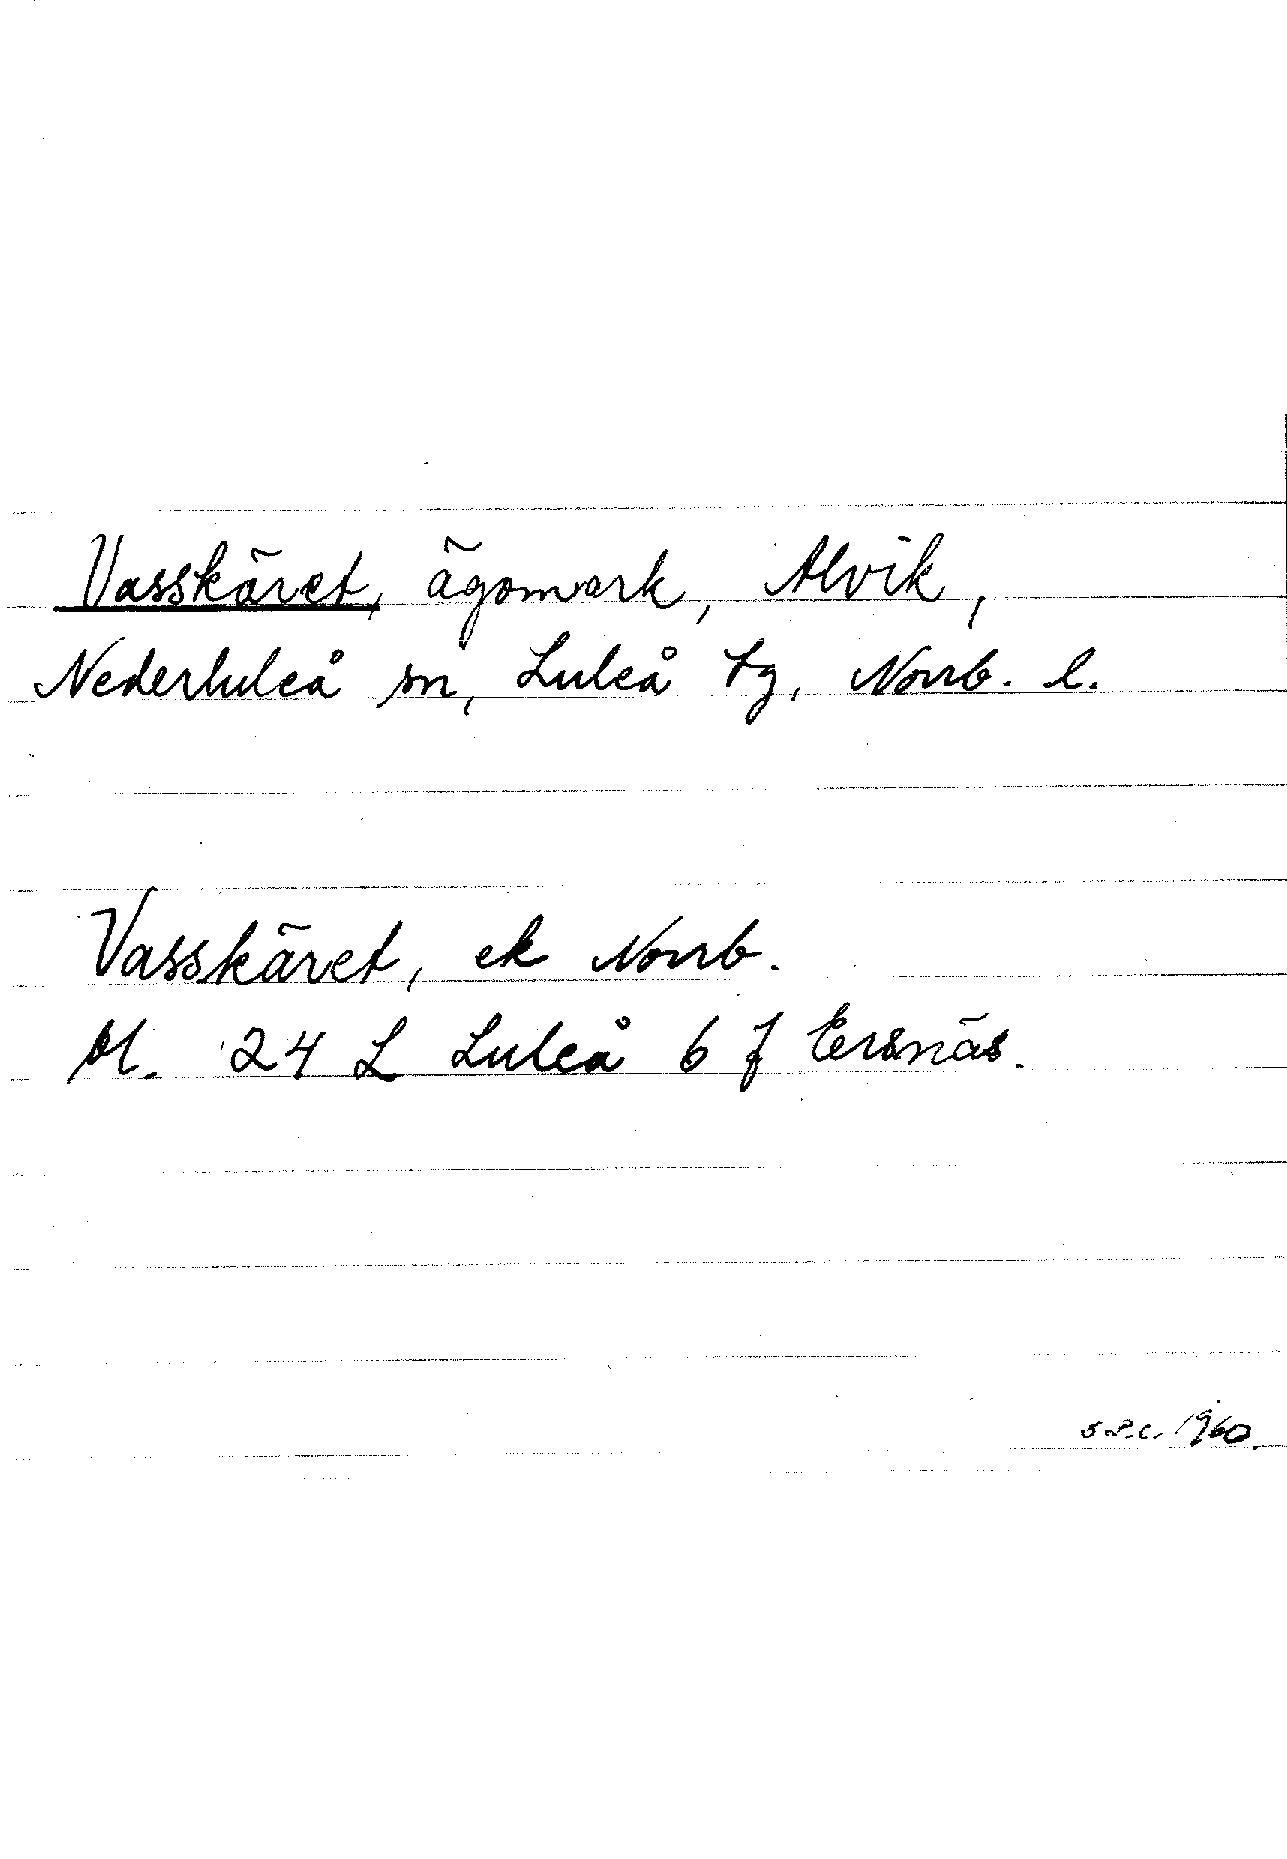 Vasskäret, ägomark, Alvik,
Nederluleå sn, Luleå tg, Norrb. l.
Vasskäret, ek Norrb.
bl. 24 L Luleå 6 f Ersnäs.
1960.